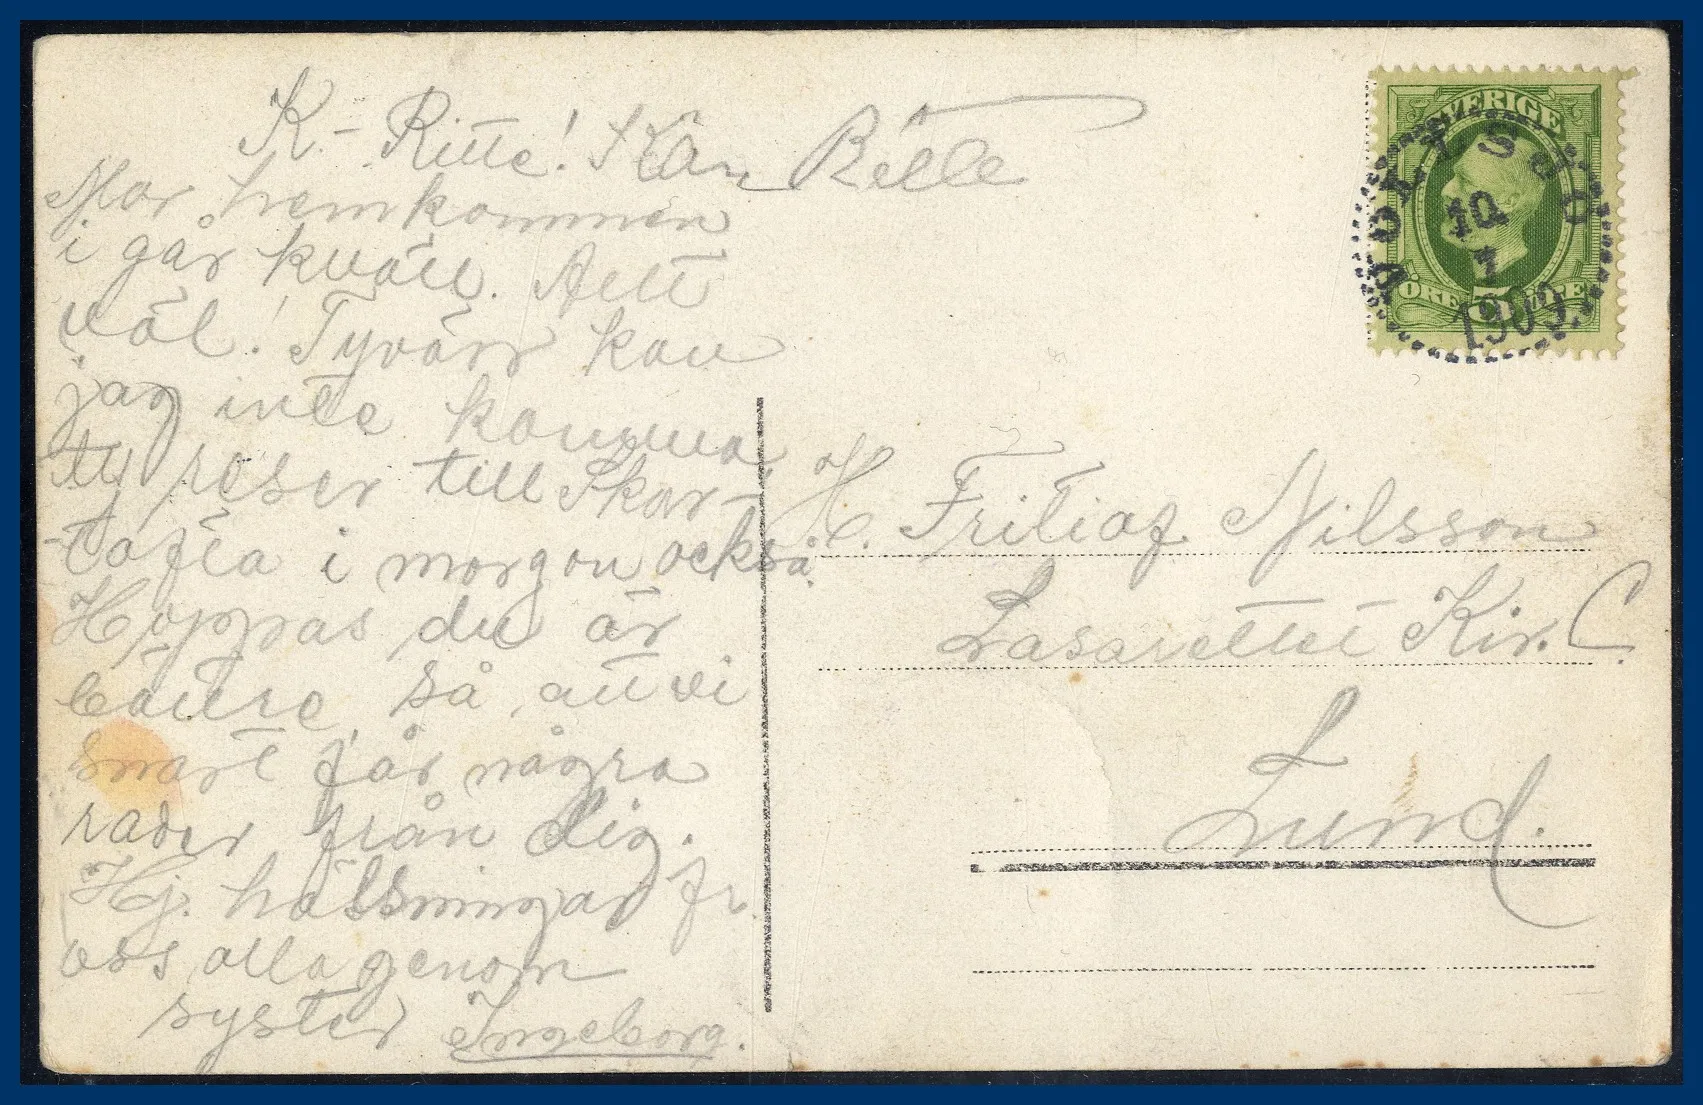 K.- Ritte! Kän Bette
Mor hemkommen
i går kväll. Allt
väl! Tyvärr kan
jag inte komma
ty reser till Skar-
-tofta i morgon också.
Hoppas du är
bättre, så att vi
snart får några
rader från dig.
Hj. hälsningar fr.
oss alla genom
syster Ingeborg.
SVERIGE
ÖRE 5 ÖRE
10
7
1909
H. Fritiof Nilsson
Lasarettet Kir. C.
Lund.